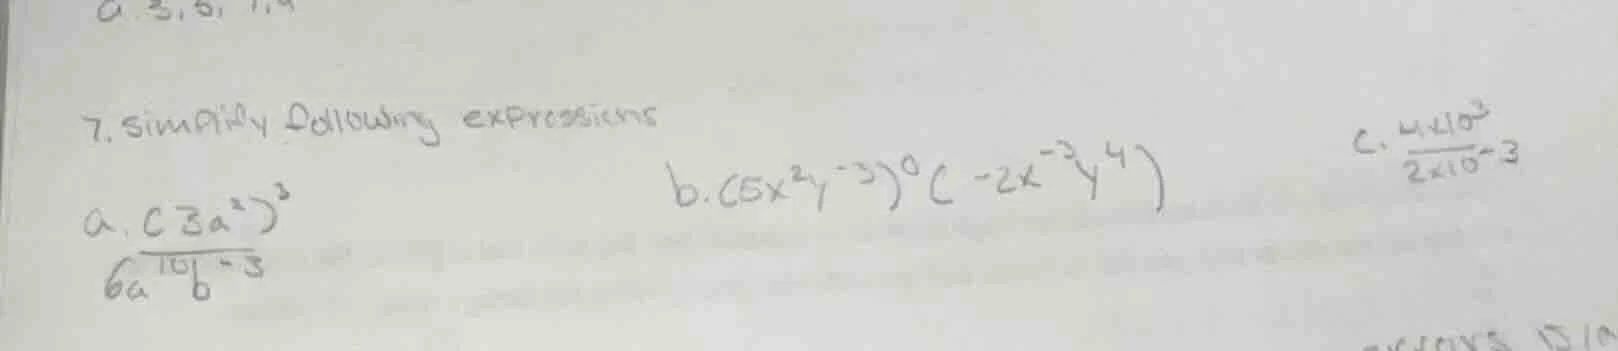 a. 3, 5, 7, 9
7. simplify following expressions
a. (3a²)³ / 6a¹⁰b⁻³
b. (5x²y⁻³)⁰(-2x⁻³y⁴)
c. 4x10³ / 2x10⁻³